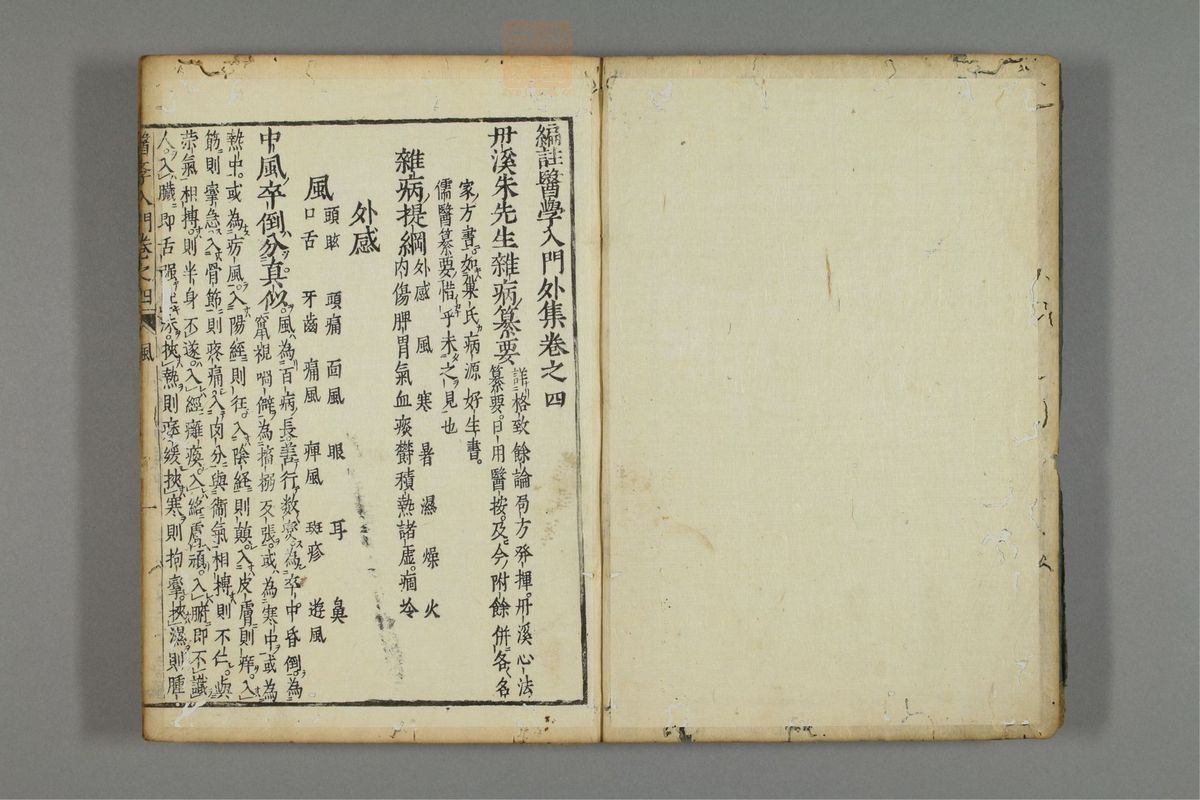 編註醫學入門外集卷之四
丹溪朱先生雜病纂要
詳格致餘論局方發揮丹溪心法
纂要日用醫按及今附餘併各名
家方書如巢氏病源好生書
儒醫纂要惜乎未之見也
雜病提綱
外感 風 寒 暑 濕 燥 火
內傷脾胃氣血痰鬱積熱諸虛痼冷
外感
風
頭眩 頭痛 面風 眼 耳 鼻
口舌 牙齒 痛風 痺風 斑疹 遊風
中風卒倒分真似
風為百病長善行數變為卒中昏倒為
竄視喎僻為搐搦反張或為寒中或為
熱中或為癘風入陽經則狂入陰經則顛入皮膚則痒入
筋則攣急入骨節則疼痛入肉分與衛氣相搏則不仁與
榮氣相搏則半身不遂入經癱瘓入絡膚頑入腑即不識
人入臟即舌強吐沫挾熱則痿緩挾寒則拘攣挾濕則腫
醫學入門卷之四 風 一